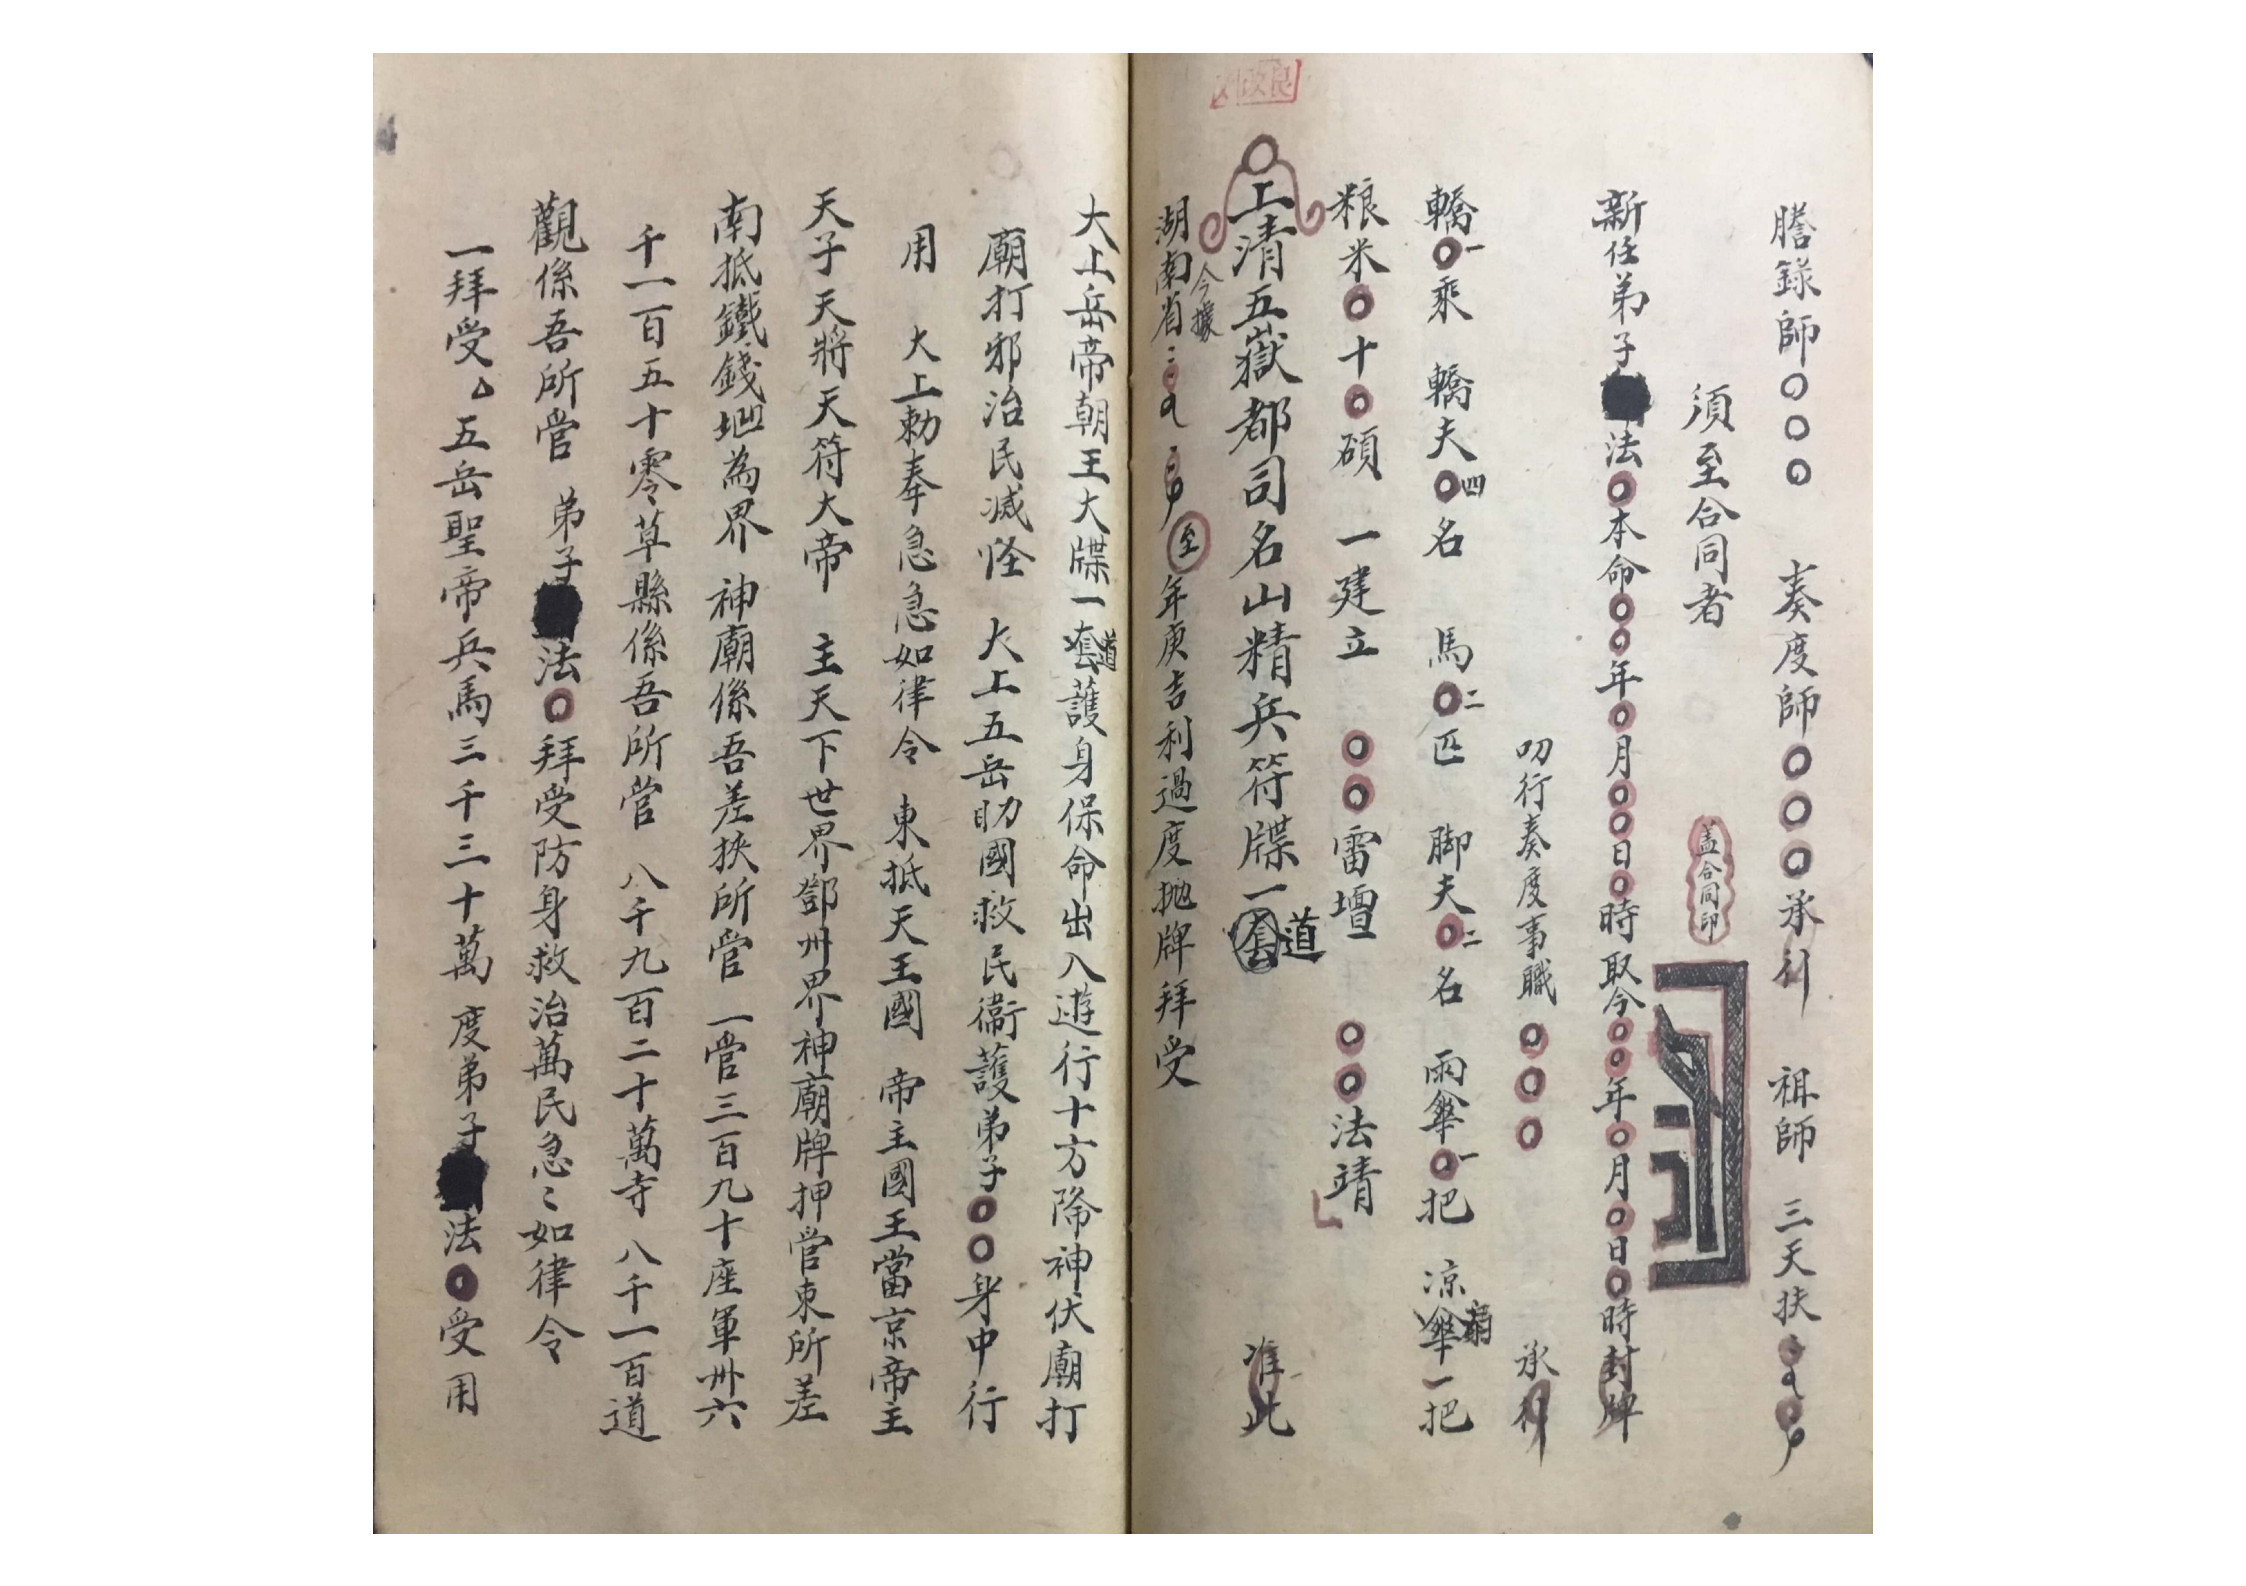 謄錄師〇〇〇 奏度師〇〇〇承行 祖師 三天扶
須至合同者
蓋合同印
新任弟子 法〇本命〇〇年〇月〇〇日〇時取今〇〇年〇月〇日〇時封牌
叨行奏度事職〇〇〇 承行
轎〇一乘 轎夫〇四名 馬〇二匹 脚夫〇二名 雨傘〇一把 凉傘扇一把
粮米〇十〇碩 一建立 〇〇雷壇 〇〇法靖
上清五嶽都司名山精兵符牒一套道 准此
今據
湖南省 至年庚吉利過度抛牌拜受
大上岳帝朝王大牒一套道護身保命出入遊行十方降神伏廟打
廟打邪治民滅怪 大上五岳助國救民衞護弟子〇〇身中行
用 大上勅奉急急如律令 東抵天王國 帝主國王當京帝主
天子天將天符大帝 主天下世界鄧州界神廟牌押管東所差
南抵鐵錢地為界 神廟係吾差挾所管 一管三百九十座軍卅六
千一百五十零草縣係吾所管 八千九百二十萬寺 八千一百道
觀係吾所管 弟子 法〇拜受防身救治萬民急〻如律令
一拜受 五岳聖帝兵馬三千三十萬 度弟子 法〇受用